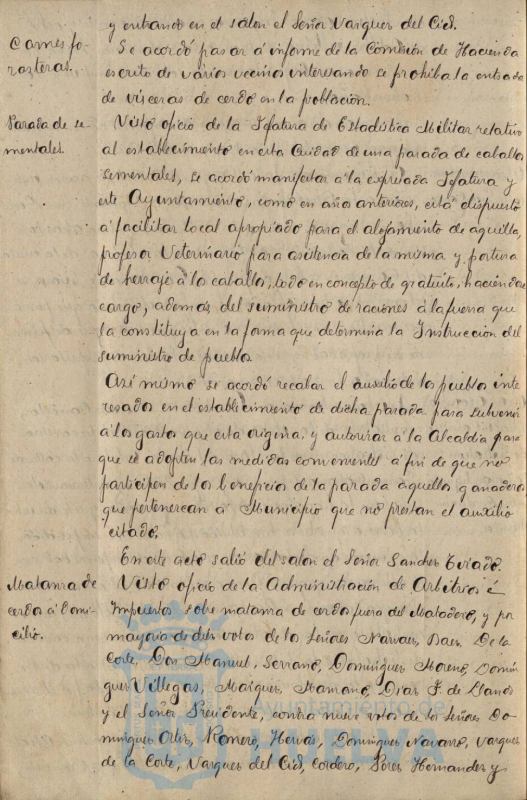 y entrando en el salon el Señor Vazquez del Cid.
Carnes fo-
rasteras.
Se acordó pasar á informe de la Comisión de Hacienda
escrito de varios vecinos interesando se prohiba la entrada
de vísceras de cerdo en la población.
Parada de se-
mentales.
Visto oficio de la Jefatura de Estadística Militar relativo
al establecimiento en esta Ciudad de una parada de caballos
sementales, se acordó manifestar á la expresada Jefatura q
este Ayuntamiento, como en años anteriores, está dispuesto
á facilitar local apropiado para el alojamiento de aquella,
profesor Veterinario para asistencia de la misma y postura
de herraje á los caballos, todo en concepto de gratuito, haciendose
cargo, además, del suministro de raciones á la fuerza que
la constituya en la forma que determina la Instrucción del
suministro de pueblos.
Asi mismo se acordó recabar el auxilio de los pueblos inte
resados en el establecimiento de dicha parada para subvenir
á los gastos que esta origina, y autorizar á la Alcaldía para
que se adopten las medidas convenientes á fin de que no
participen de los beneficios de la parada aquellos ganaderos
que pertenezcan á Municipio que no prestan el auxilio
citado.
En este acto salió del salon el Señor Sanchez Tirado.
Matanza de
cerdos á domi-
cilio.
Visto oficio de la Administración de Arbitrios é
Impuestos sobre matanza de cerdos fuera del Matadero, y por
mayoría de diez votos de los Señores Narvaez, Baez, De la
Corte, Don Manuel, Serrano, Dominguez Moreno, Domin
guez Villegas, Maiquez, Mamano, Diaz F. de Llanos
y el Señor Presidente, contra nueve votos de los Señores Do-
minguez Ortiz, Romero, Hervás, Dominguez Navarro, Vazquez
de la Corte, Vazquez del Cid, Cordero, Perez Hernandez y
Ayuntamiento de
HUELVA